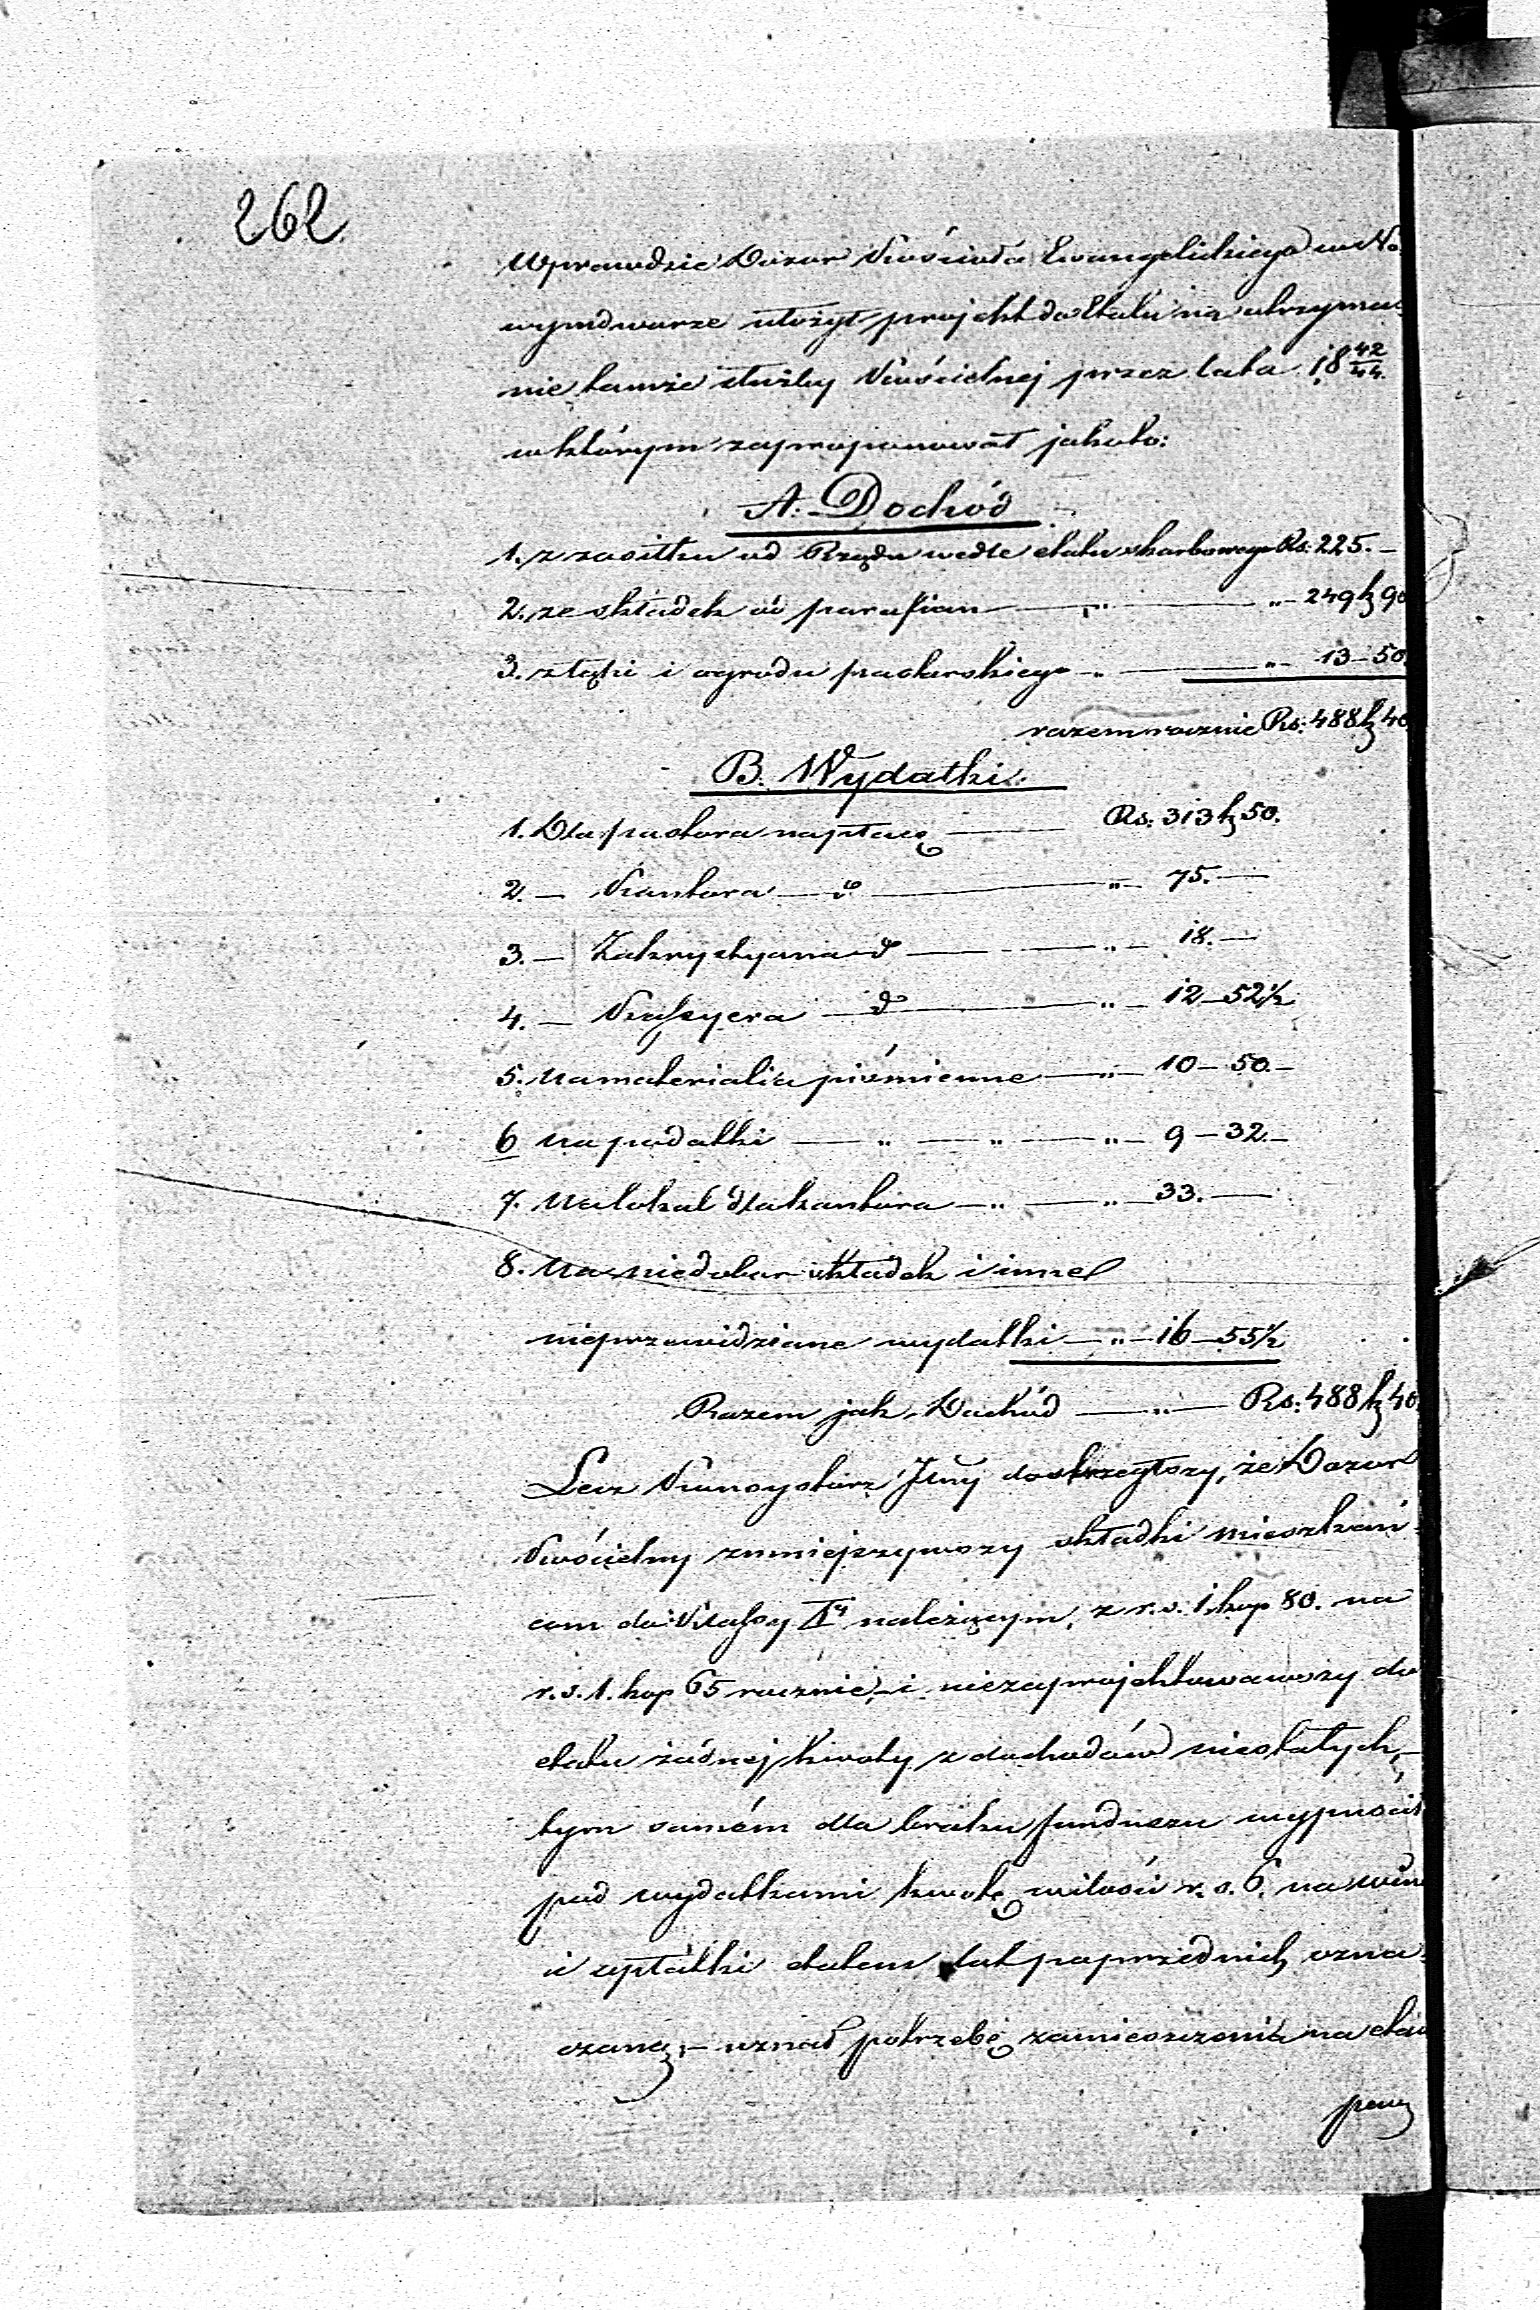 262
Wprawdzie Dozor Kościoła Ewangelickiego w No-
wymdworze ułożył projekt do Etatu na utrzyma-
nie tamże służby Kościelnej przez lata 18 42/44
w którym zaproponował jakoto:
A. Dochód
1. z zasiłku od Rządu wedle etatu skarbowego Rs: 225. —
2. ze składek od parafian — „ — „ — 249 k 90
3. z łąki i ogrodu pastorskiego — „ — „ — 13 — 50.
razem rocznie Rs: 488 k 40.
B. Wydatki.
1. Dla pastora na płacę — Rs: 313 k 50.
2. — Kantora — d° — „ — 75. —
3. — Zakrystyana d° — „ — 18. —
4. — Kassyera — d° — „ — 12 — 52½
5. Na materialia piśmienne — „ — 10 — 50. —
6 Na podatki — „ — „ — „ — 9 — 32. —
7. Na lokal dla kantora — „ — „ — 33. —
8. Na niedobor składek i inne
nieprzewidziane wydatki — „ — 16 — 55½
Razem jak Dochód — „ — Rs: 488 k 40.
Lecz Konsystorz Jlny dostrzegłszy, że Dozor
Kościelny zmniejszywszy składki mieszkań-
com do Klassy II należącym, z r. s. 1. kop 80. na
r. s. 1. kop 65 rocznie, i niezaprojektowawszy do
etatu żadnej kwoty z dochodów niestałych, —
tym samém dla braku funduszu wypuścił
pod wydatkami kwotę w ilości r. s. 6. na wino
i opłatki etatem lat poprzednich ozna-
czoną, — uznał potrzebę zamieszczenia na etat